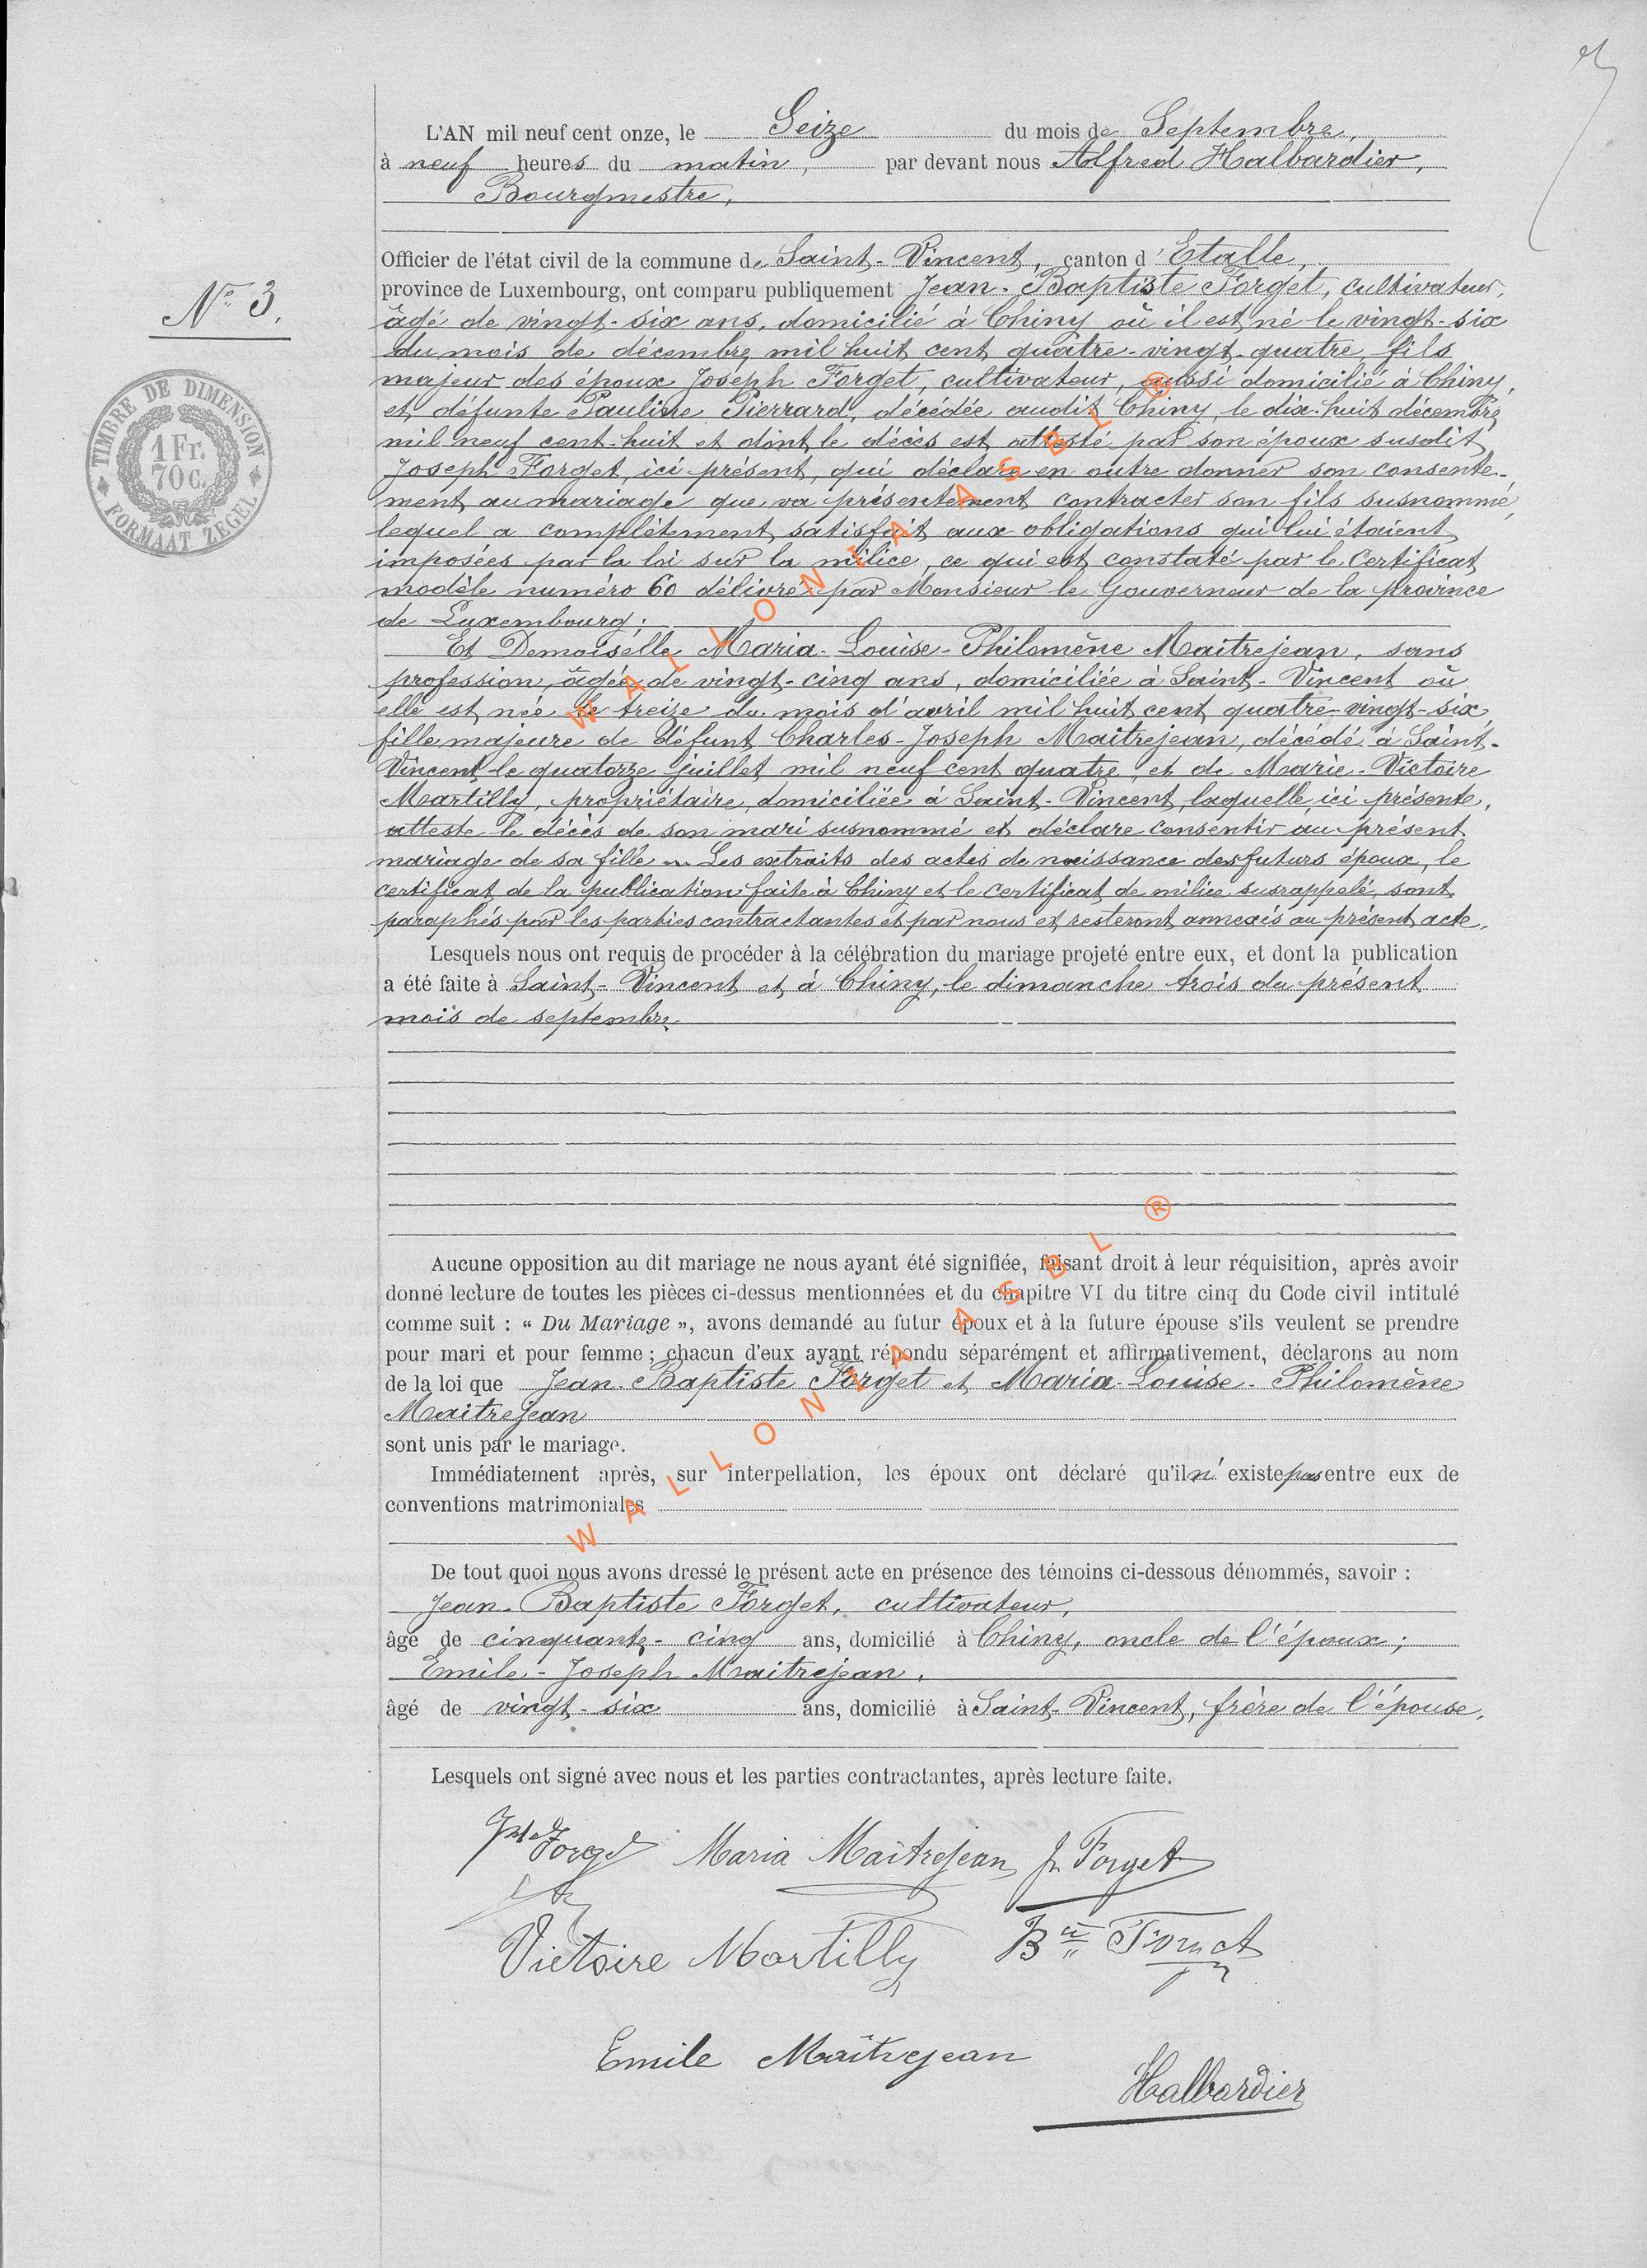 L'AN mil neuf cent onze, le Seize du mois de Septembre,
à neuf heures du matin, par devant nous Alfred Halbardier,
Bourgmestre,
Officier de l'état civil de la commune de Saint-Vincent, canton d'Etalle,
province de Luxembourg, ont comparu publiquement Jean-Baptiste Forget, cultivateur,
âgé de vingt-six ans, domicilié à Chiny où il est né le vingt-six
du mois de décembre mil huit cent quatre-vingt-quatre, fils
majeur des époux Joseph Forget, cultivateur, aussi domicilié à Chiny,
et défunte Pauline Pierrard, décédée audit Chiny, le dix-huit décembre
mil neuf cent-huit et dont le décès est attesté par son époux susdit,
Joseph Forget, ici présent, qui déclare en outre donner son consente-
ment au mariage que va présentement contracter son fils susnommé,
lequel a complètement satisfait aux obligations qui lui étaient
imposées par la loi sur la milice, ce qui est constaté par le Certificat
modèle numéro 60 délivré par Monsieur le Gouverneur de la province
de Luxembourg;
Et Demoiselle Maria-Louise-Philomène Maitrejean, sans
profession, âgée de vingt-cinq ans, domiciliée à Saint-Vincent où
elle est née le treize du mois d'avril mil huit cent quatre-vingt-six,
fille majeure de défunt Charles-Joseph Maitrejean, décédé à Saint-
Vincent le quatorze juillet mil neuf cent quatre et de Marie-Victoire
Martilly, propriétaire, domiciliée à Saint-Vincent, laquelle, ici présente,
atteste le décès de son mari susnommé et déclare consentir au présent
mariage de sa fille. Les extraits des actes de naissance des futurs époux, le
certificat de la publication faite à Chiny et le certificat de milice susrappelé, sont
paraphés par les parties contractantes et par nous et resteront annexés au présent acte.
N° 3.
TIMBRE DE DIMENSION
1 Fr.
70 c.
FORMAAT ZEGEL
Lesquels nous ont requis de procéder à la célébration du mariage projeté entre eux, et dont la publication
a été faite à Saint-Vincent et à Chiny, le dimanche trois du présent
mois de septembre
Aucune opposition au dit mariage ne nous ayant été signifiée, faisant droit à leur réquisition, après avoir
donné lecture de toutes les pièces ci-dessus mentionnées et du chapitre VI du titre cinq du Code civil intitulé
comme suit : « Du Mariage », avons demandé au futur époux et à la future épouse s'ils veulent se prendre
pour mari et pour femme ; chacun d'eux ayant répondu séparément et affirmativement, déclarons au nom
de la loi que Jean-Baptiste Forget et Maria-Louise-Philomène
Maitrejean
sont unis par le mariage.
Immédiatement après, sur interpellation, les époux ont déclaré qu'il n'existe pas entre eux de
conventions matrimoniales
De tout quoi nous avons dressé le présent acte en présence des témoins ci-dessous dénommés, savoir :
Jean-Baptiste Forget, cultivateur,
âgé de cinquante-cinq ans, domicilié à Chiny, oncle de l'époux;
Emile-Joseph Maitrejean,
âgé de vingt-six ans, domicilié à Saint-Vincent, frère de l'épouse.
Lesquels ont signé avec nous et les parties contractantes, après lecture faite.
Forget Maria Maîtrejean J. Forget
Victoire Martilly Bte Forget
Emile Maîtrejean
Halbardier
WALLONIA ASBL ®
WALLONIA ASBL ®